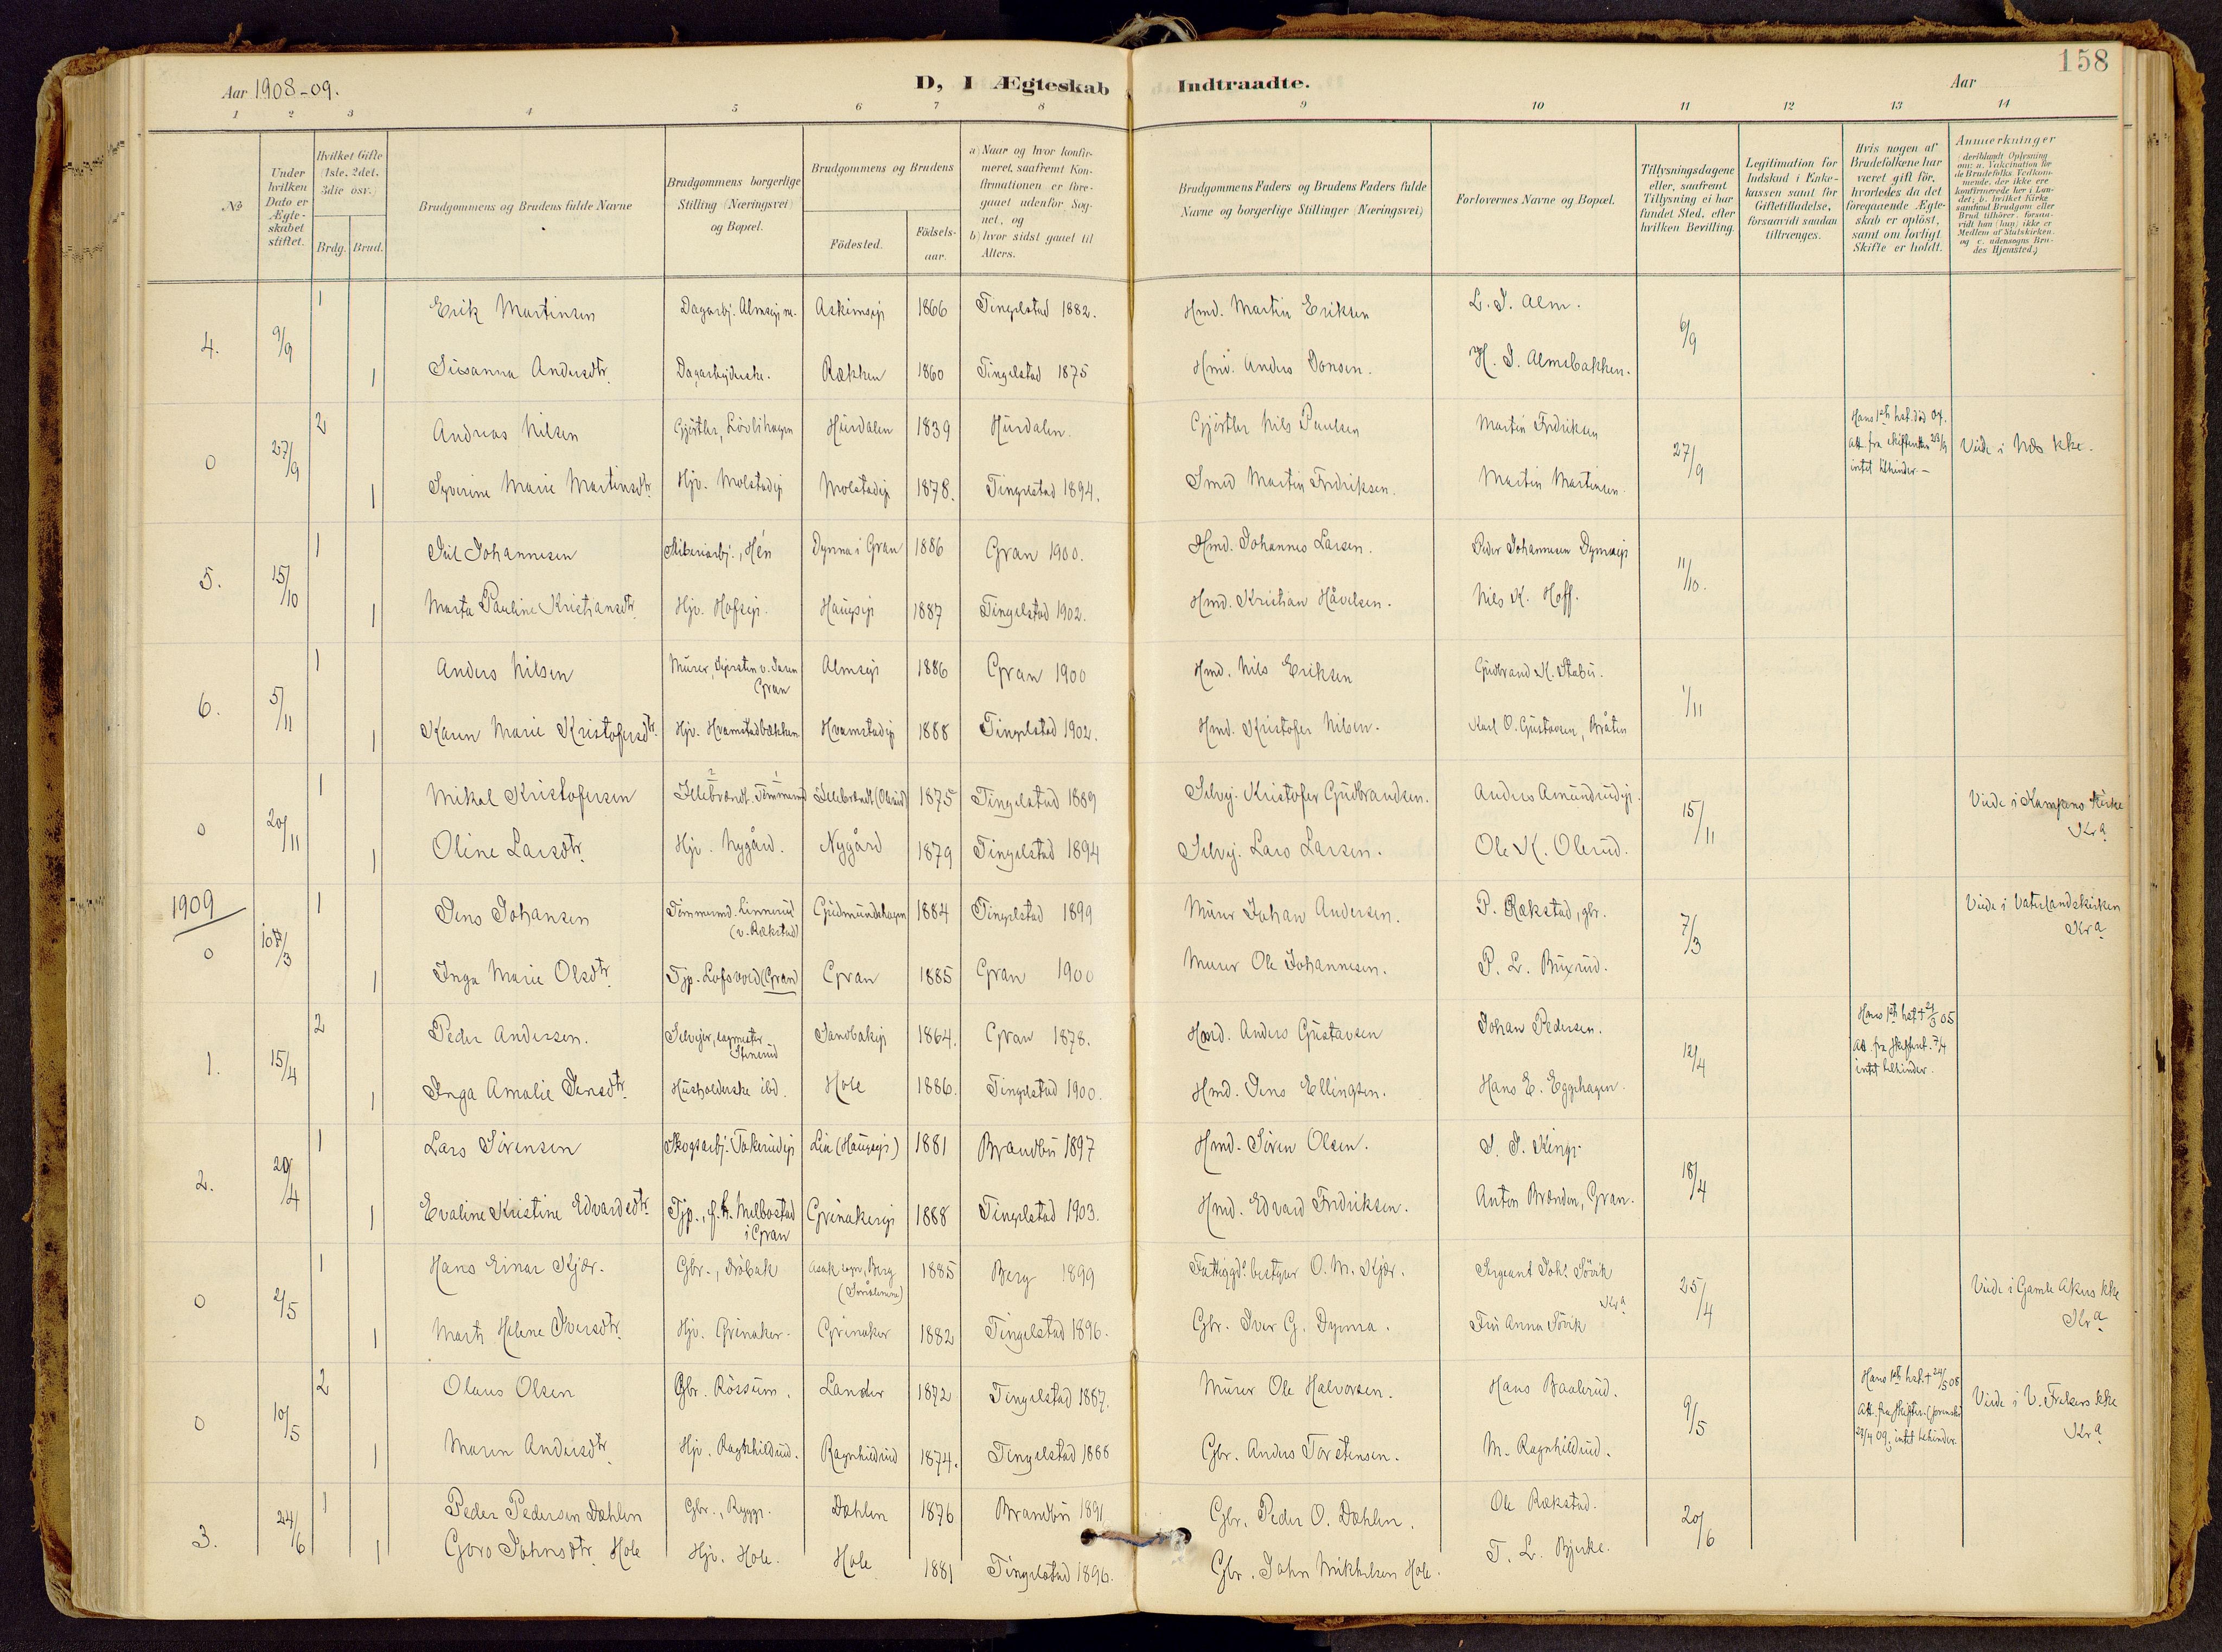 158
Aar 1908-09.
D, I Ægteskab Indtraadte.
Aar
1 2 3 4 5 6 7 8 9 10 11 12 13 14
№
Under hvilken Dato er Ægteskabet stiftet.
Hvilket Gifte (1ste, 2det, 3die osv.)
Brdg. Brud.
Brudgommens og Brudens fulde Navne
Brudgommens borgerlige Stilling (Næringsvei) og Bopæl.
Brudgommens og Brudens
Födested. Födsels-aar.
a) Naar og hvor konfirmeret, saafremt Konfirmationen er foregaaet udenfor Sognet, og
b) hvor sidst gaaet til Alters.
Brudgommens Faders og Brudens Faders fulde Navne og borgerlige Stillinger (Næringsvei)
Forlovernes Navne og Bopæl.
Tillysningsdagene eller, saafremt Tillysning ei har fundet Sted, efter hvilken Bevilling.
Legitimation for Indskud i Enkekassen samt for Giftetilladelse, forsaavidt saadan tiltrænges.
Hvis nogen af Brudefolkene har været gift før, hvorledes da det foregaaende Ægteskab er oplöst, samt om lovligt Skifte er holdt.
Anmærkninger
(deriblandt Oplysning om: a. Vakcination for de Brudefolks Vedkommende, der ikke ere konfirmerede her i Landet; b. hvilket Kirkesamfund Brudgom eller Brud tilhører, forsaavidt han (hun) ikke er Medlem af Statskirken, og c. udensogns Brudes Hjemsted.)
4. 9/9 1 Erik Martinsen Dagarbj. Almseje m. Askimseje 1866 Tingelstad 1882. Hmd. Martin Eriksen L. J. Alm. 6/9
1 Susanna Andersdtr. Dagarbejderske. Rækken 1860 Tingelstad 1875 Hmd. Anders Jonsen. H. J. Almsbakken.
0 27/9 2 Andreas Nilsen Gjörtler, Lövlihagen Hurdalen 1839 Hurdalen. Gjörtler Nils Paulsen Martin Fredriksen 27/9 Hans 1ste hst. död 04. Att. fra skifteretten 23/9 intet tilhinder — Viede i Næs kke.
1 Syverine Marie Martinsdtr. Hjv. Molstadeje Molstadeje 1878. Tingelstad 1894. Smed Martin Fredriksen. Martin Martinsen.
5. 15/10 1 Juul Johannesen Sliberiarbj., Hén Dynna i Gran 1886 Gran 1900. Hmd. Johannes Larsen. Peder Johannesen Dynnaeje 11/10.
1 Marta Pauline Kristiansdtr. Hjv. Hofseje. Haugseje 1887 Tingelstad 1902. Hmd. Kristian Håvelsen. Nils K. Hoff.
6. 5/11 1 Anders Nilsen Murer, v. Jaren Gran Almseje 1886 Gran 1900 Hmd. Nils Eriksen Gudbrand K. Stabu. 1/11
1 Karen Marie Kristofersdtr. Hjv. Hvamstadbækken Hvamstadeje 1888 Tingelstad 1902. Hmd. Kristofer Nilsen. Karl O. Gustavsen, Bråten
0 20/11 1 Mikal Kristofersen Ilebrændt. Tömmermd. Ilebrændt (Olerud) 1875 Tingelstad 1889 Selvej. Kristofer Gudbrandsen. Anders Amundrudeje. 15/11 Viede i Kampens Kirke Kr.a
1 Oline Larsdtr. Hjv. Nygård. Nygård 1879 Tingelstad 1894 Selvej. Lars Larsen. Ole K. Olerud.
1909
0 10/3 1 Jens Johansen Tömmermd. Linnerud (v. Rækstad) Gudmundshagen 1884 Tingelstad 1899 Murer Johan Andersen. P. Rækstad, gbr. 7/3 Viede i Vaterlandskirken Kr.a
1 Inga Marie Olsdtr. Tjp. Lofsvold (Gran) Gran 1885 Gran 1900 Murer Ole Johannesen. P. L. Buxrud.
1. 15/4 2 Peder Andersen. Selvejer, sagmester Stenerud Sandbakeje 1864. Gran 1878. Hmd. Anders Gustavsen Johan Pedersen. 12/4 Hans 1ste hst. † 2/3 05 Att. fra skifteret. 7/4 intet tilhinder.
1 Inga Amalie Jensdtr. Husholderske ibd. Hole 1886. Tingelstad 1900. Hmd. Jens Ellingsen. Hans E. Eggehagen.
2. 20/4 1 Lars Sörensen Skogsarbj. Tokerudeje Lia (Haugseje) 1881 Brandbu 1897 Hmd. Sören Olsen. S. S. Kinge. 18/4
1 Evaline Kristine Edvardsdtr. Tjp., f. h. Melbostad i Gran Grinakereje 1888 Tingelstad 1903. Hmd. Edvard Fredriksen. Anton Brænden, Gran.
0 2/5 1 Hans Einar Kjær. Gbr., Dröbak Asak sogn, Berg (Smålenene) 1885 Berg 1899 Fattiggds. bestyrer O. M. Kjær. Sergeant Johs. Sörik Kr.a 25/4 Viede i Gamle Akers kke Kr.a
1 Marth Helene Iversdtr. Hjv. Grinaker. Grinaker 1882 Tingelstad 1896. Gbr. Iver G. Dynna. Fru Anna Sörik
0 10/5 2 Olaus Olsen Gbr. Rössum. Lander 1872 Tingelstad 1887. Murer Ole Halvorsen. Hans Baalerud. 9/5 Hans 1ste hst. † 24/5 08 Att. fra skifter. (sorensk.) 23/4 09, intet tilhinder. Viede i V. Frelsers kke Kr.a
1 Maren Andersdtr. Hjv. Ragnhildrud. Ragnhildrud 1874. Tingelstad 1888 Gbr. Anders Torstensen. M. Ragnhildrud.
3. 24/6 1 Peder Pedersen Dæhlen Gbr., Rygge. Dæhlen 1876 Brandbu 1891 Gbr. Peder O. Dæhlen. Ole Rækstad. 20/6
1 Goro Johnsdtr. Hole Hjv. Hole. Hole 1881 Tingelstad 1896. Gbr. John Mikkelsen Hole. T. L. Bjerke.